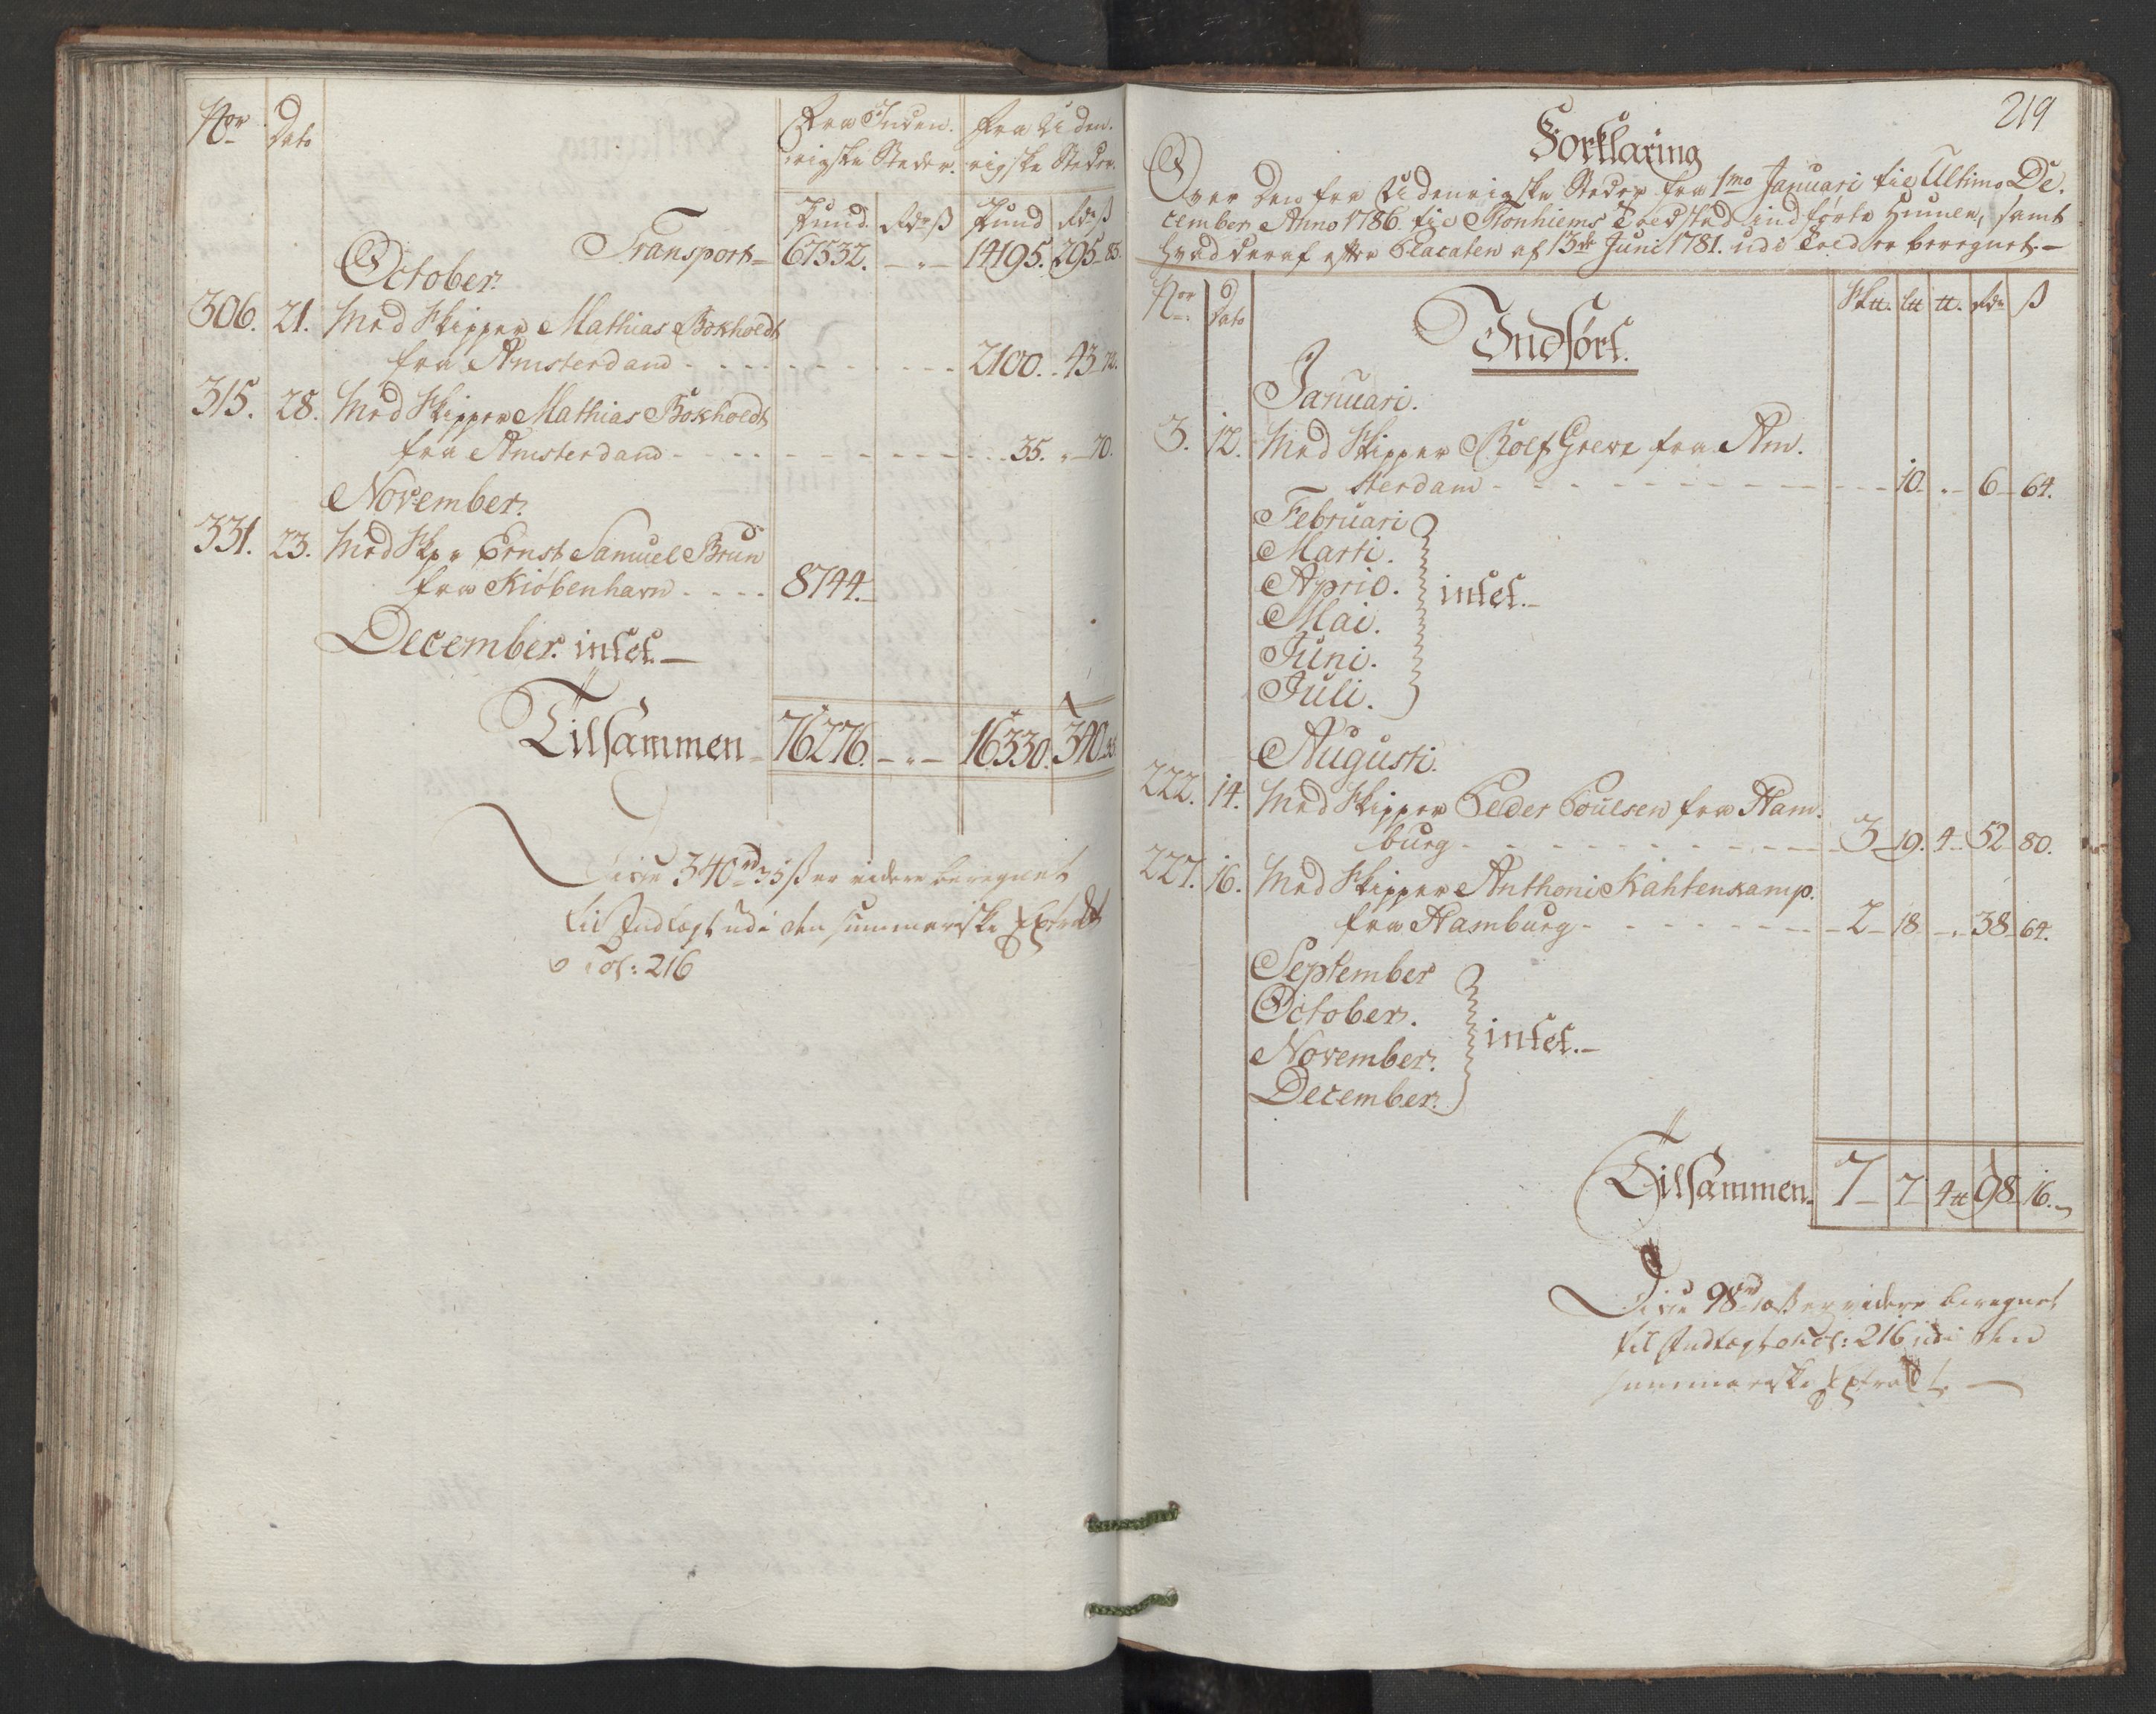 No
Dato
Fra Inden- Fra Uden-
rigske Steder. rigske Steder.
Pund. Rdr ß Pund Rdr ß
Transport 67532. — " — 14195. 295 83.
October.
306. 21. Med Skipper Mathias Bokholdt
fra Amsterdam - - - 2100. 43 72.
315. 28. Med Skipper Mathias Bokholdt
fra Amsterdam - - - 35. " 70.
November.
331. 23. Med Skpr Ernst Samuel Brun
fra Kiöbenhavn - - - 8744.
December. intet. —
Tilsammen 76276. — " — 16330. 340
Disse 340 rd 35 ß er videre beregnet
til Indtægt udi den summariske Extract
Fol: 216
219
Forklaring
Over den fra Udenrigske Steder fra 1mo Januari til Ultimo De-
cember Anno 1786 til Tronhiems Toldsted indførte Humle, samt
hvad deraf efter Placaten af 13de Juni 1781. udi Told er beregnet. —
No Dato Sk℔. L℔ ℔. Rdr ß
Indført.
Januari.
3. 12. Med Skipper Rolf Greve fra Am-
sterdam - - - 10. " 6 64.
Februari
Marti.
April.
Mai.
Juni.
Juli.
intet. —
Augusti.
222. 14. Med Skipper Peder Poulsen fra Ham-
burg - - - 3 19. 4 52 80.
227. 16. Med Skipper Anthoni Kahtenkamp.
fra Hamburg - - - 2 18 " 38 64.
September
October.
November.
December.
intet. —
Tilsammen. 7 7 4℔ 98 16.
Disse 98 rd 16 ß er videre beregnet
til Indtægt Fol: 216 udi den
summariske Extract. —